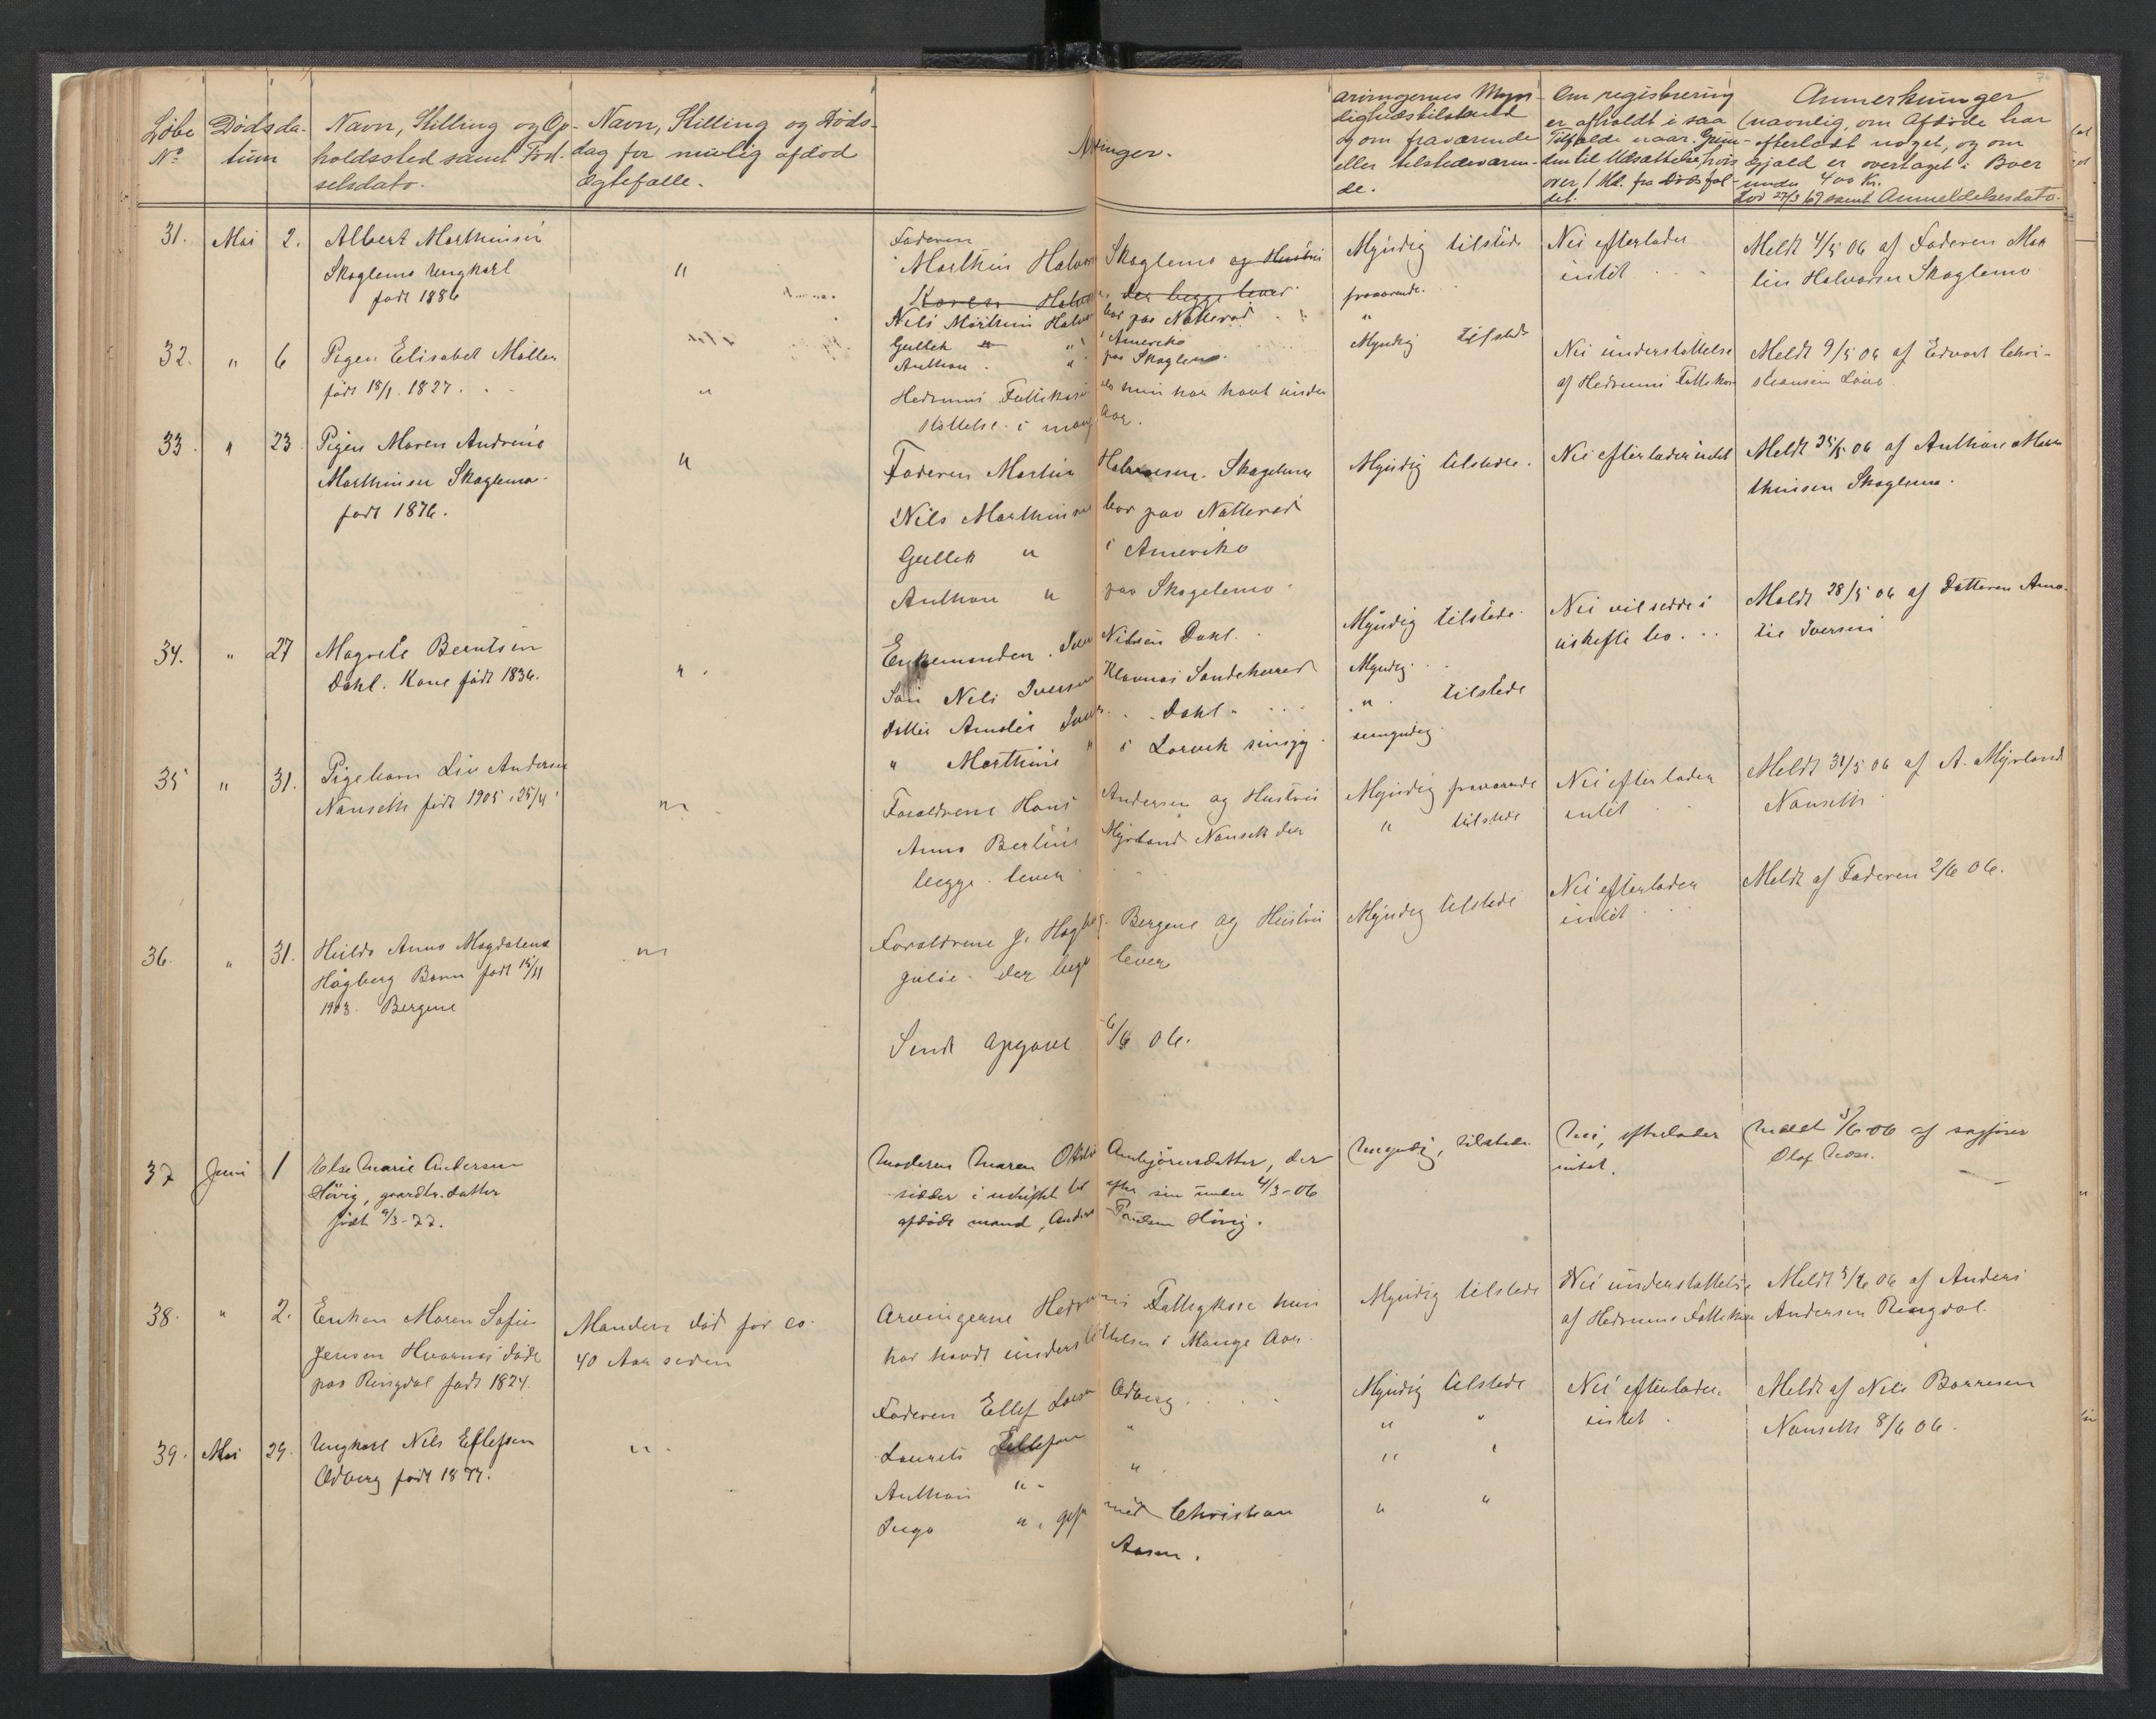 Løbe Nº
Dødsdatum
Navn, Stilling og Opholdssted samt Fødselsdato.
Navn, Stilling og Dødsdag for mulig afdød Ægtefælle.
Arvinger.
Arvingernes Myndighedstilstand og om fraværende eller tilstedeværende.
Om registrering er afholdt i saa Tilfælde naar. Grunden til Udsættelse, hvis over 1 Md. fra Dødsfaldet.
Anmerkninger (navnlig, om Afdøde har efterladt noget, og om Gjæld er overtaget i Boer under 400 Kr. Lov 27/3 69 samt Anmeldelsesdato.
31. Mai 2. Albert Marthinsen
Skoglemo Ungkarl
født 1886
"
Faderen
Marthin Halvorsen Skoglemo og Hustru
Karen Halvorsen, der begge lever
Nils Marthin Halvorsen bor paa Natterød
Gullek " i Ameriko
Anthon " paa Skoglemo
Myndig tilstede
fraværende.
"
Myndig tilstede
Nei efterlader
intet
Meldt 4/5 06 af Faderen Mar
tin Halvorsen Skoglemo
32. " 6 Pigen Elisabet Møller
født 18/1 1827.
"
Hedrums Fattikasse hun har havt under
støttelse i mange Aar.
Nei understøttelse
af Hedrums Fattikasse
Meldt 9/5 06 af Edvart Chri-
stiansen
33 " 23 Pigen Maren Andrine
Marthinsen Skoglemo
født 1876.
"
Faderen Martin Halvorsen Skogelemo
Nils Marthinsen bor paa Natterød
Gullek " i Ameriko
Anthon " paa Skogelemo
Myndig tilstede.
Nei efterlader intet
Meldt 25/5 06 af Anthon Mar
thinsen Skoglemo.
34. " 27 Magrete Berntsen
Dahl. Kone født 1836.
"
Enkemanden Iver Nilsen Dahl.
Søn Nils Iversen Klavnes Sandeherred
Datter Amalie Iversen Dahl
" Marthine " i Larvik
Myndig tilstede
Myndig
" tilstede
umyndig
Nei vil sidde i
uskifte bo.
Meldt 28/5 06 af Datteren Ama-
lie Iversen
35 " 31. Pigebarn Liv Andersen
Nanseth født 1905 25/4
"
Foraldrene Hans Andersen og Hustru
Anna Bertine Myrland Nanseth der
begge lever
Myndig fraværende
" tilstede
Nei efterlader
intet
Meldt 31/5 06 af A. Myrland
Nanseth
36. " 31. Huldo Anna Magdalena
Hågberg Barn født 15/11
1903. Bergene
"
Foraldrene J. Hagberg Bergene og Hustru
Julie der begge lever
Myndig tilstede
Nei efterlader
intet
Meldt af Faderen 2/6 06.
Sendt opgave 6/6 06.
37 Juni 1 Else Marie Andersen
Høvig, gaardbr. datter
født 9/3-77.
Moderen Maren Otilie Anbjørnsdatter, der
sidder i uskiftet bo efter sin under 4/3-06
afdøde mand, Anders Paulsen Høvig.
Myndig, tilstede
Nei, efterlader
intet.
Meldt 5/6-06 af sagfører
Olaf Moss.
38. " 2. Enken Maren Sofie
Jensen Hvarnes døde
paa Ringdal født 1824.
Manden død for ca.
40 Aar siden
Arvingerne Hedrums Fattigkasse hun
har havdt understøttelse i Mange Aar.
Myndig tilstede
Nei understøttelse
af Hedrums Fattikasse
Meldt 5/6 06 af Anders
Andersen Ringdal.
39. Mai 29. Ungkarl Nils Ellefsen
Odberg født 1877.
"
Faderen Ellef Larsen Odberg
Laurits Ellefsen "
Anthon " "
Inga " gift med Christian
Aasen.
Myndig tilstede
" "
" "
" "
Nei efterlader
intet
Meldt af Nils Børresen
Nanseth 8/6 06.